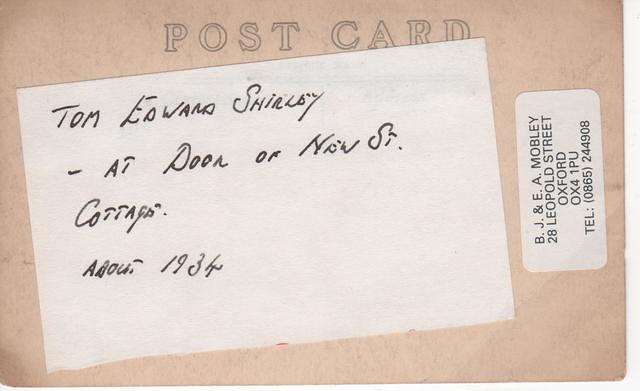 POST CARD
TOM EDWARD SHIRLEY
- AT DOOR OF NEW ST.
COTTAGE.
ABOUT 1934
B. J. & E. A. MOBLEY
28 LEOPOLD STREET
OXFORD
OX4 1PU
TEL: (0865) 244908